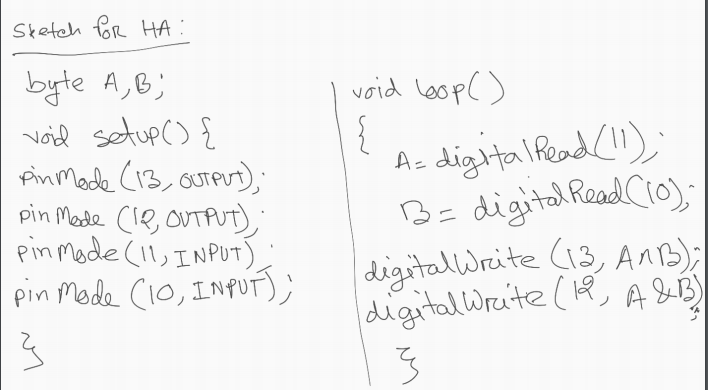 Sketch for HA:
byte A,B;
void setup() {
pinMode (13, OUTPUT);
pinMode (12, OUTPUT);
pinMode (11, INPUT);
pinMode (10, INPUT);
}
void loop()
{
A = digitalRead(11);
B = digitalRead(10);
digitalWrite (13, A^B);
digitalWrite (12, A&B);
}